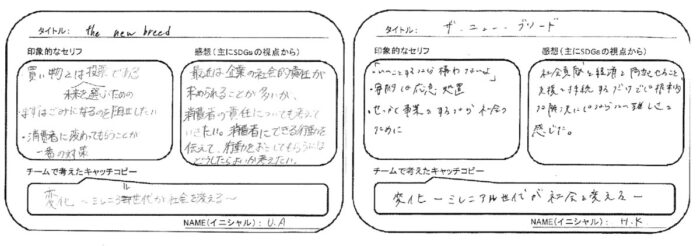 タイトル: the new breed
印象的なセリフ
買い物とは投票である
未来を選ぶための
・まずはごみになるのを阻止したい
・消費者に変わってもらうことが
一番の対策
感想(主にSDGsの視点から)
最近は企業の社会的責任が
求められることが多いが、
消費者の責任についても考えて
いきたい。消費者にできる行動を
伝えて、行動をおこしてもらうには
どうしたらよいか考えたい。
チームで考えたキャッチコピー
変化 〜ミレニアル世代が社会を変える〜
NAME(イニシャル): U.A
タイトル: ザ・ニュー・ブリード
印象的なセリフ
「いいことするなら構わないよ」
・応急処置
・せっかく事業をするなら社会の
ために
感想(主にSDGsの視点から)
社会貢献と経済を両立させること
を
難しいと
感じた。
チームで考えたキャッチコピー
変化 ーミレニアル世代が社会を変えるー
NAME(イニシャル): H.K